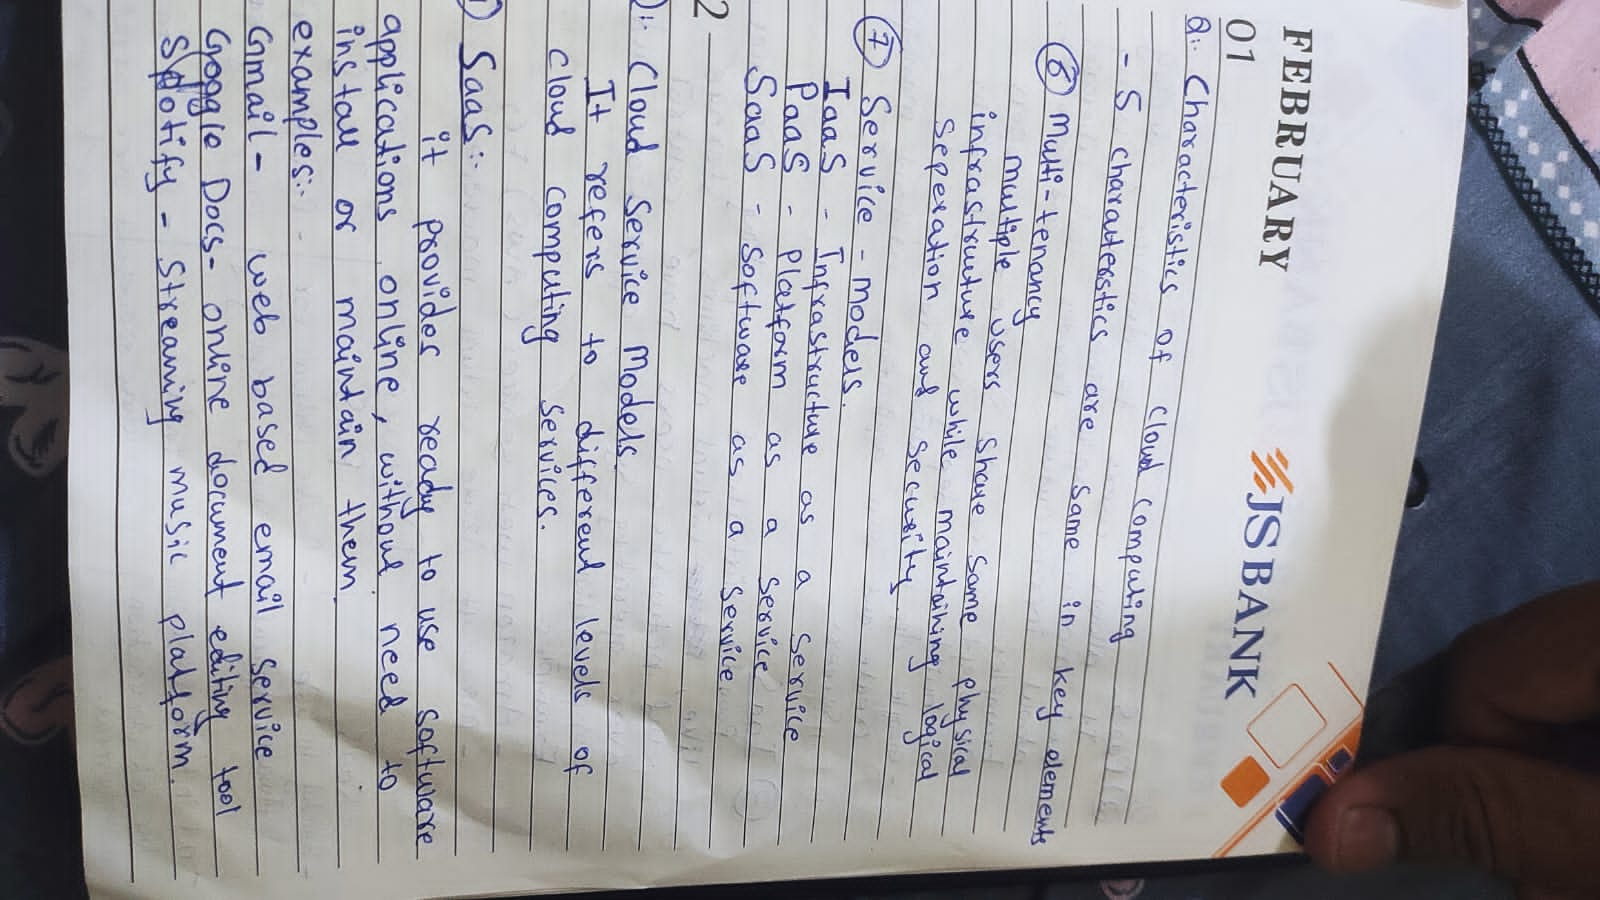 FEBRUARY
JS BANK
01
Q:- Characteristics of cloud computing
- 5 charateristics are same in key elements
⑥ Multi-tenancy
multiple users share same physical
infrastructure while maintaining logical
Seperation and Security
⑦ Service - models.
IaaS - Infrastructure as a Service
PaaS - Platform as a Service
SaaS - Software as a Service
2
Q:- Cloud Service Models.
It refers to different levels of
cloud computing services.
① SaaS:-
it provides ready to use software
applications online, without need to
install or maintain them.
examples:-
Gmail - web based email service
Google Docs - online document editing tool
Spotify - Streaming music platform.